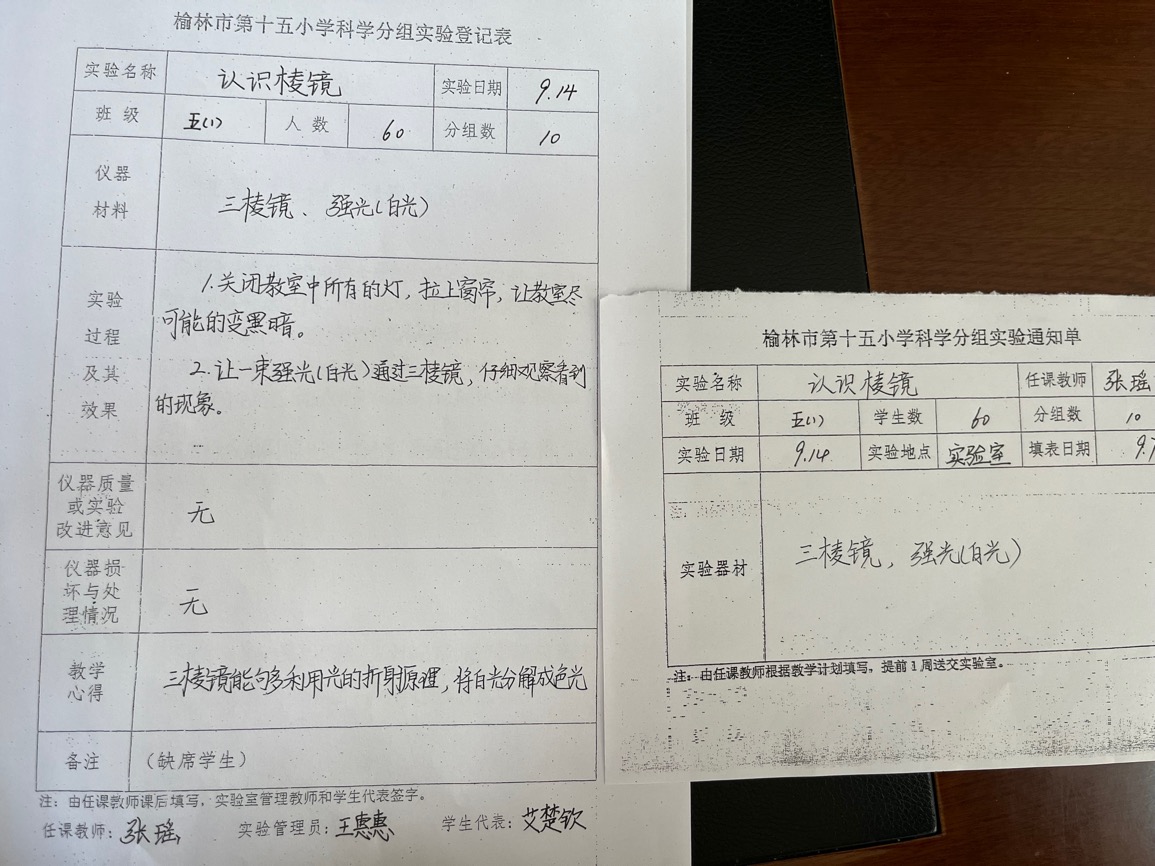 榆林市第十五小学科学分组实验登记表
实验名称 认识棱镜 实验日期 9.14
班 级 五(1) 人 数 60 分组数 10
仪器
材料
三棱镜、强光(白光)
实验
过程
及其
效果
1.关闭教室中所有的灯,拉上窗帘,让教室尽
可能的变黑暗。
2.让一束强光(白光)通过三棱镜,仔细观察看到
的现象。
仪器质量
或实验
改进意见
无
仪器损
坏与处
理情况
无
教学
心得
三棱镜能够利用光的折射原理,将白光分解成色光
备注 (缺席学生)
注:由任课教师课后填写,实验室管理教师和学生代表签字。
任课教师:张瑶 实验管理员:王惠惠 学生代表:艾楚钦
榆林市第十五小学科学分组实验通知单
实验名称 认识棱镜 任课教师 张瑶
班 级 五(1) 学生数 60 分组数 10
实验日期 9.14 实验地点 实验室 填表日期 9.7
实验器材 三棱镜,强光(白光)
注:由任课教师根据教学计划填写,提前1周送交实验室。